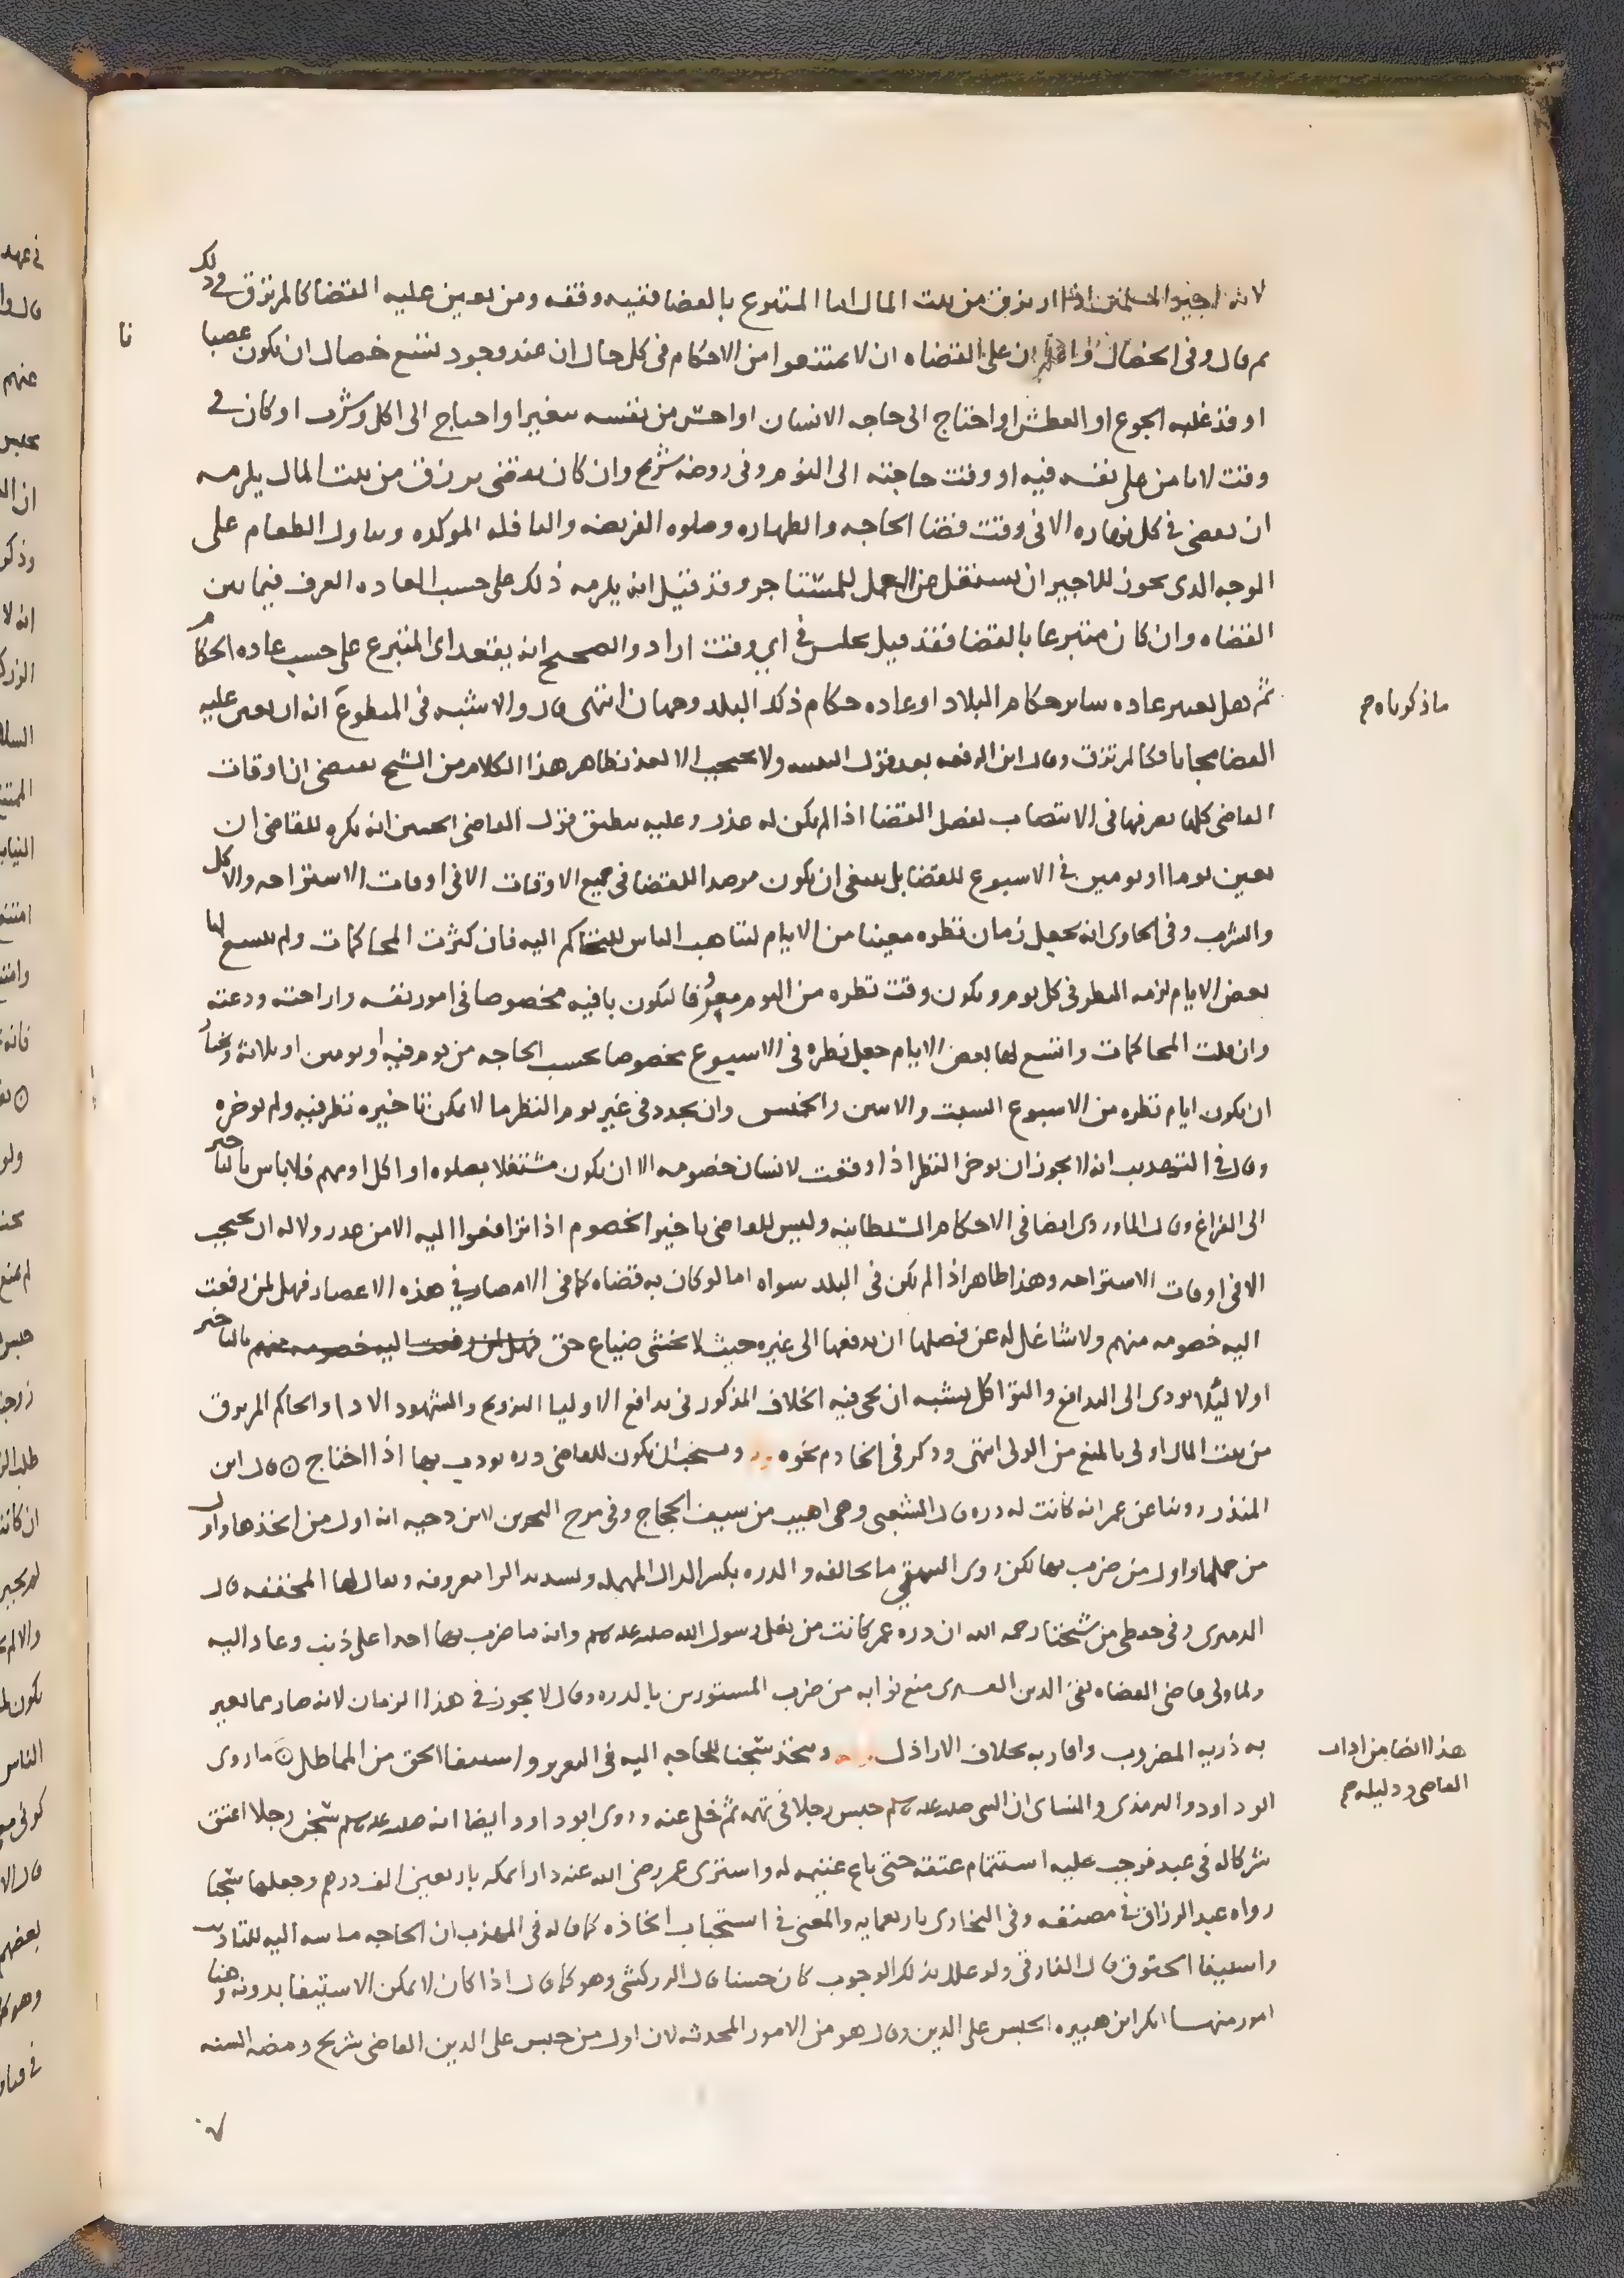 لانه اجير المسلمين اذا ارتزق من بيت المال اما المتبرع بالقضا ففيه وقفه ومن تعين عليه القضا كالمرتزق في ذلك
ثم قال وفي الخصال ان على القضاه ان لا يمتنعوا من الاحكام في كل حال ان عند وجود تسع خصال ان يكون غضبانا
او قد غلبه الجوع او العطش او احتاج الى حاجه الانسان او احس من نفسه تغيرا او احتاج الى اكل وشرب او كان في
وقت لا يامن على نفسه فيه او وقت حاجته الى النوم وفي روضه شريح وان كان القاضي يرزق من بيت المال يلزمه
ان يقضي في كل نهاره الا في وقت قضا الحاجه والطهاره وصلوه الفريضه والنافله الموكده وتناول الطعام على
الوجه الذي يجوز للاجير ان يستقل عن العمل للمستاجر وقد قيل انه يلزمه ذلك على حسب العاده العرف فيما بين
القضاه وان كان متبرعا بالقضا فقد قيل يجلس في اي وقت اراد والصحيح انه يقعد اي المتبرع على حسب عاده الحكام
ثم هل يعتبر عاده ساير حكام البلاد او عاده حكام ذلك البلد وجهان انتهى قال والاشبه في المتطوع انه ان تعين عليه
القضا مجانا فكالمرتزق وقال ابن الرفعه بعد قول التنبيه ولا يحتجب الا لعذر ظاهر هذا الكلام من الشيخ يقتضي ان اوقات
القاضي كلها يصرفها في الانتصاب لفصل القضا اذا لم يكن له عذر وعليه ينطبق قول القاضي الحسين انه يكره للقاضي ان
يعين يوما او يومين في الاسبوع للقضا بل ينبغي ان يكون مرصدا للقضا في جميع الاوقات الا في اوقات الاستراحه والاكل
والشرب وفي الحاوي انه يجعل زمان نظره معينا من الايام ليتاهب الناس للتحاكم اليه فان كثرت المحاكمات ولم يتسع لها
بعض الايام لزمه النظر في كل يوم ويكون وقت نظره من اليوم معروفا ليكون باقيه مخصوصا في امور نفسه وراحته ودعته
وان قلت المحاكمات واتسع لها بعض الايام جعل نظره في الاسبوع مخصوصا بحسب الحاجه من يوم فيه او يومين او ثلاثه
ان يكون ايام نظره من الاسبوع السبت والاثنين والخميس وان تجدد في غير يوم النظر ما لا يمكن تاخيره نظر فيه ولم يوخره
وقال في التهذيب انه لا يجوز ان يوخر النظر اذا وقعت لانسان خصومه الا ان يكون مشتغلا بصلوه او اكل او مهم فلا باس بالتاخير
الى الفراغ وقال الماوردي ايضا في الاحكام السلطانيه وليس للقاضي تاخير الخصوم اذا ترافعوا اليه الا من عذر ولا له ان يحتجب
الا في اوقات الاستراحه وهذا ظاهر اذا لم يكن في البلد سواه اما لو كان به قضاه كما في الامصار في هذه الاعصار فهل لمن رفعت
اليه خصومه منهم ولا شاغل له عن فصلها ان يدفعها الى غيره حيث لا يخشى ضياع حق فهل لمن رفعت اليه خصومه منهم بالتاخير
اولا ليلا يودي الى التدافع والتواكل يشبه ان يجي فيه الخلاف المذكور في تدافع الاوليا التزويج والشهود الادا والحاكم المرزوق
من بيت المال اولى بالمنع من الولي انتهى وذكر في الخادم نحوه ويستحب ان يكون للقاضي دره يودب بها اذا احتاج ۞ قال ابن
المنذر روينا عن عمر انه كانت له دره قال الشعبي وهي اهيب من سيف الحجاج وفي مرج البحرين لابن دحيه انه اول من اتخذها واول
من حملها واول من ضرب بها لكن روى البيهقي ما يخالفه والدره بكسر الدال المهمله وتشديد الرا معروفه ويقال لها المخففه قال
الدميري وفي حفظي من شيخنا رحمه الله ان دره عمر كانت من نعل رسول الله صلى الله عليه وسلم وانه ما ضرب بها احدا على ذنب وعاد اليه
ولما ولي قاضي القضاه تقي الدين السبكي منع نوابه من ضرب المستورين بالدره وقال لا يجوز في هذا الزمان لانه صار مما يعير
به ذريه المضروب واقاربه بخلاف الاراذل ويتخذ سجنا للحاجه اليه في التعزير واستيفا الحق من المماطل ۞ ما روى
ابو داود والترمذي والنساي ان النبي صلى الله عليه وسلم حبس رجلا في تهمه ثم خلى عنه وروى ابو داود ايضا انه صلى الله عليه وسلم سجن رجلا اعتق
شركا له في عبد فوجب عليه استتمام عتقه حتى باع غنيمه له واشترى عمر رضي الله عنه دارا بمكه باربعين الف درهم وجعلها سجنا
رواه عبد الرزاق في مصنفه وفي البخاري باربعمايه والمعنى في استحباب اتخاذه كما قاله في المهذب ان الحاجه ماسه اليه للتاديب
واستيفا الحقوق قال الفارقي ولو علل بذلك الوجوب كان حسنا قال الزركشي وهو كما قال اذا كان لا يمكن الاستيفا بدونه وهنا
امور منها انكر ابن هبيره الحبس على الدين وقال هو من الامور المحدثه لان اول من حبس على الدين القاضي شريح ومضه السنه
ما ذكرناه صح
هذا ايضا من اداب
القاضي ودليله صح